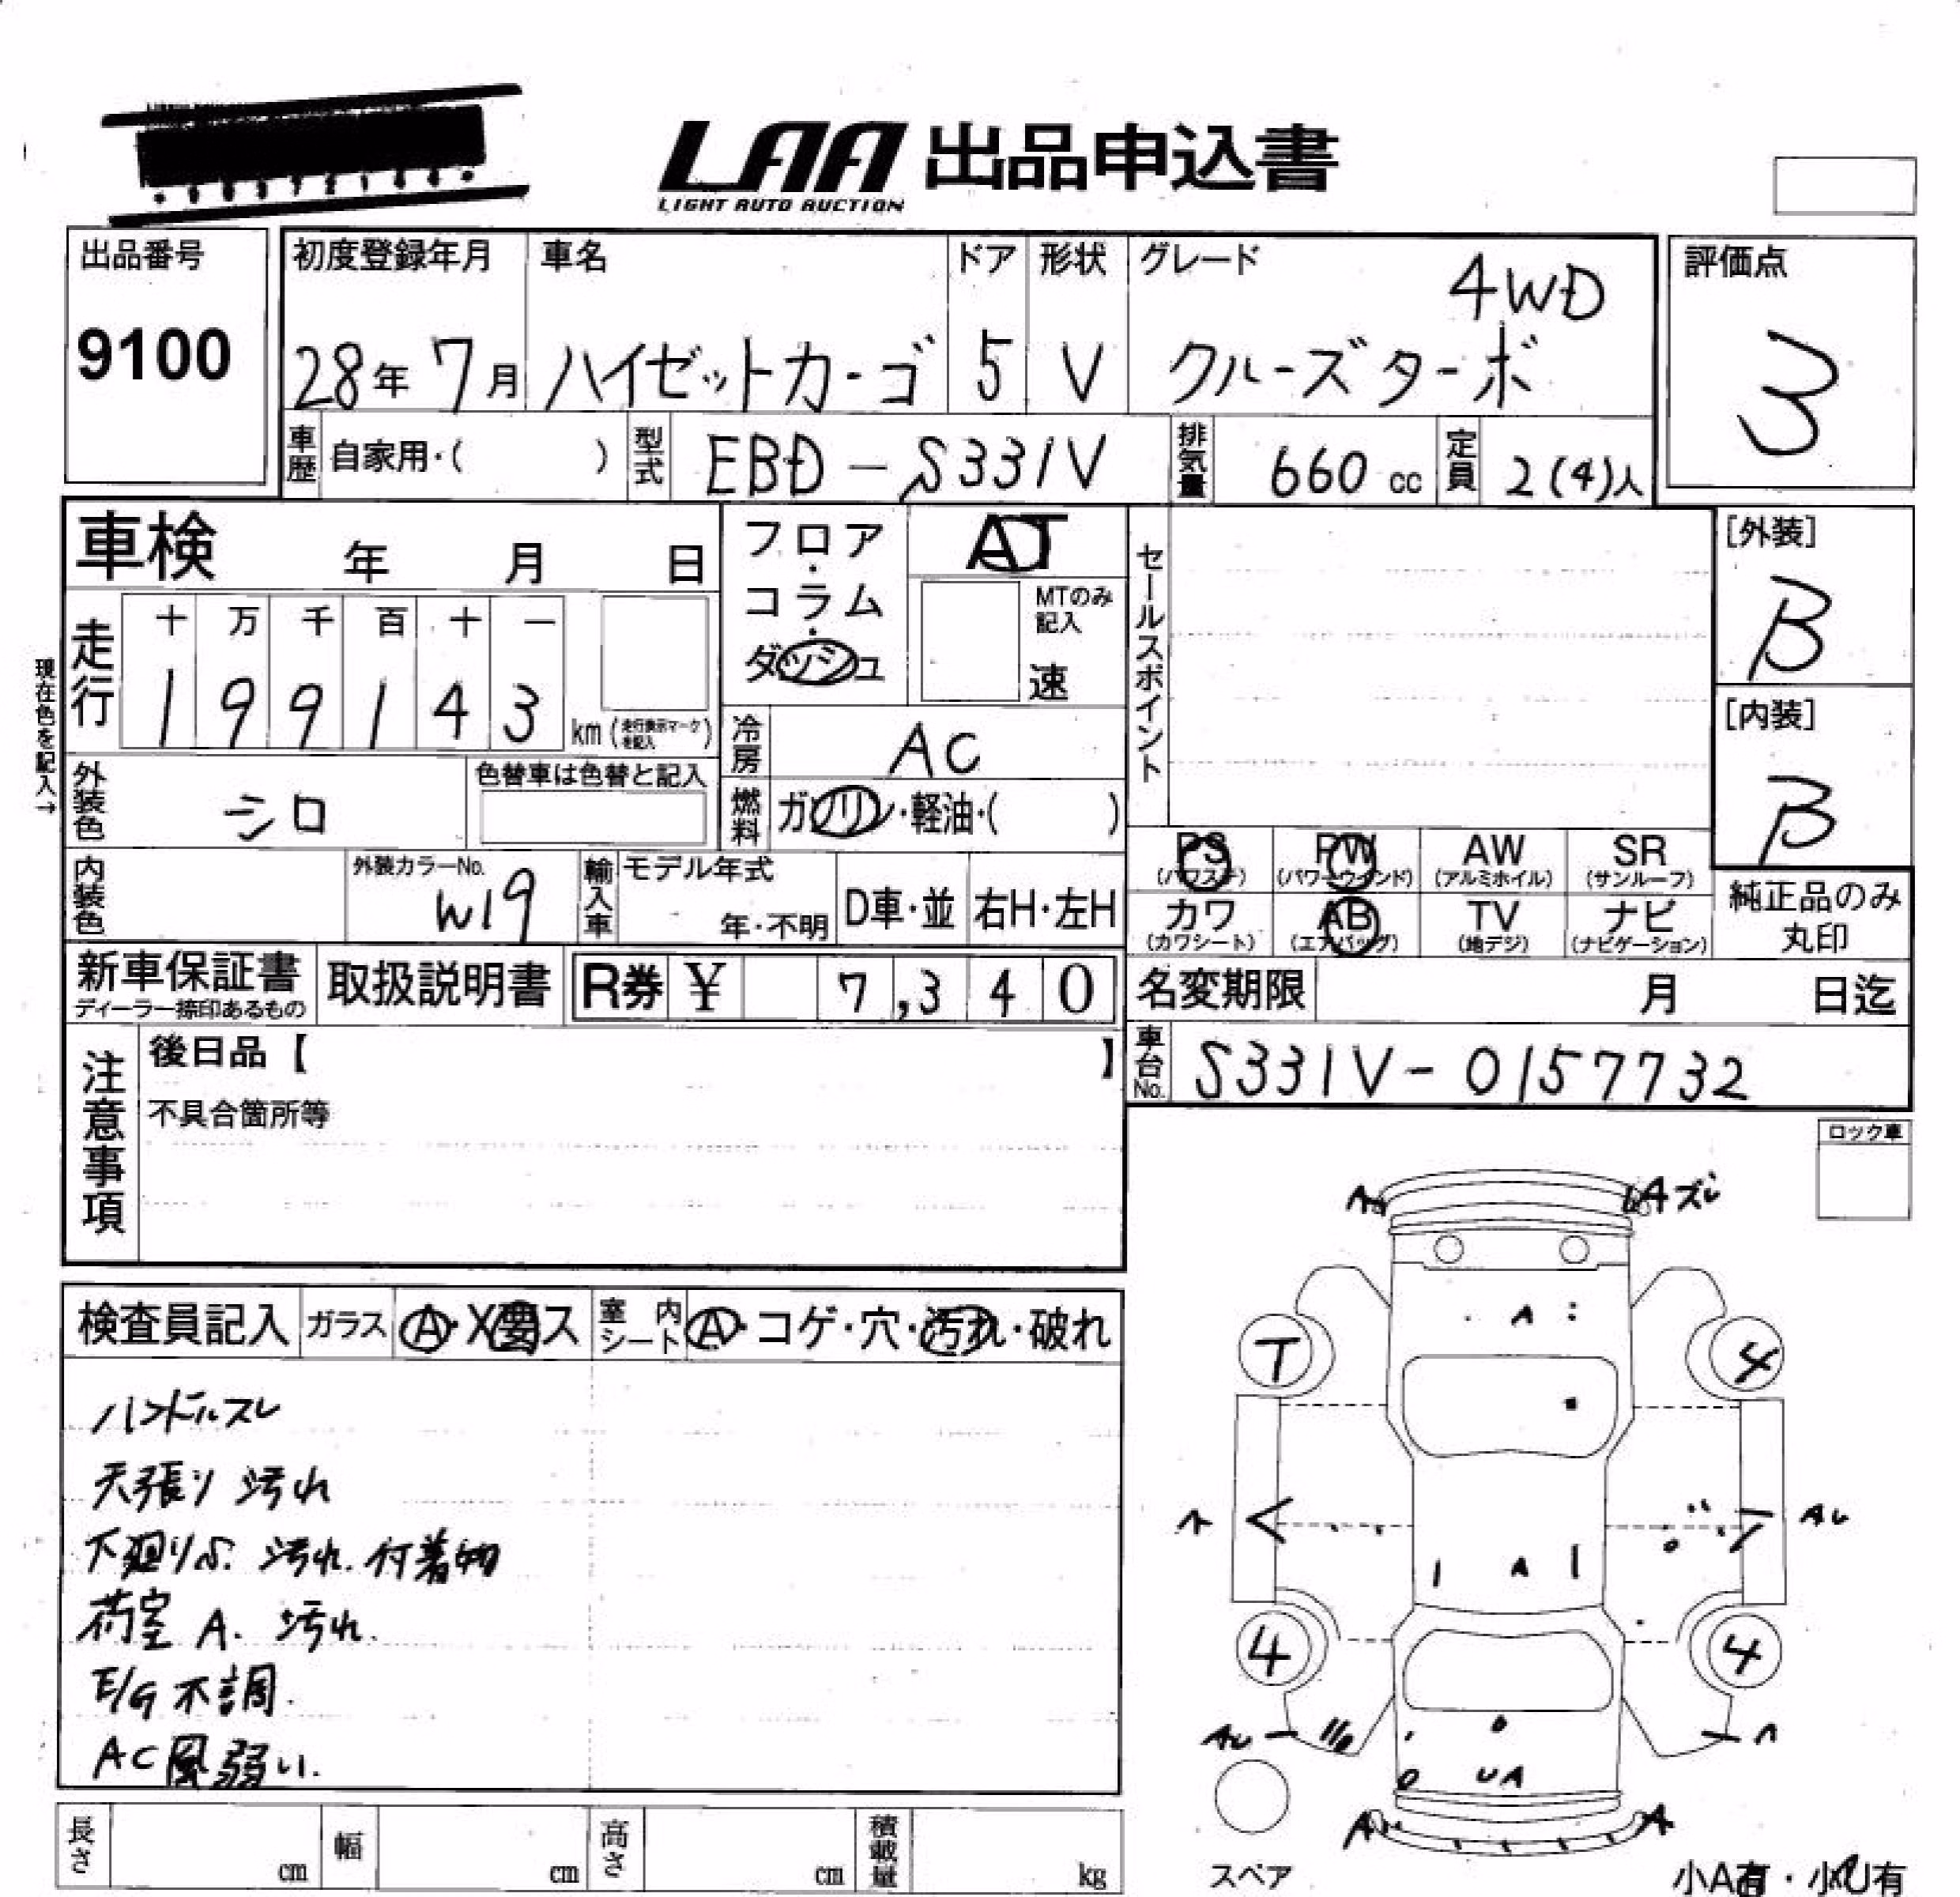 LAA 出品申込書
LIGHT AUTO AUCTION
出品番号
9100
初度登録年月
28年 7月
車名
ハイゼットカーゴ
ドア
5
形状
V
グレード
4WD
クルーズターボ
評価点
3
車歴 自家用・( )
型式 EBD-S331V
排気量 660 cc
定員 2(4)人
車検 年 月 日
フロア・コラム・ダッシュ
AT
MTのみ記入
速
セールスポイント
[外装]
B
[内装]
B
現在色を記入→
走行
十 万 千 百 十 一
1 9 9 1 4 3
km (走行表示マークを記入)
冷房 AC
外装色 シロ
色替車は色替と記入
燃料 ガソリン・軽油・( )
PS (パワステ)
PW (パワーウインド)
AW (アルミホイル)
SR (サンルーフ)
カワ (カワシート)
AB (エアバッグ)
TV (地デジ)
ナビ (ナビゲーション)
純正品のみ丸印
内装色
外装カラーNo.
W19
輸入車
モデル年式
年・不明
D車・並
右H・左H
新車保証書
ディーラー捺印あるもの
取扱説明書
R券 ¥ 7,340
名変期限 月 日迄
車台No. S331V-0157732
注意事項
後日品【 】
不具合箇所等
ロック車
A
Aズレ
検査員記入
ガラス A・X要ス
室内シート A・コゲ・穴・汚れ・破れ
ハンドルスレ
天張り 汚れ
下廻りS. 汚れ. 付着物
荷室 A. 汚れ.
E/G 不調.
AC風弱い.
A
T
4
A
4
4
UA
A
A
スペア
長さ cm
幅 cm
高さ cm
積載量 kg
小A有・小U有